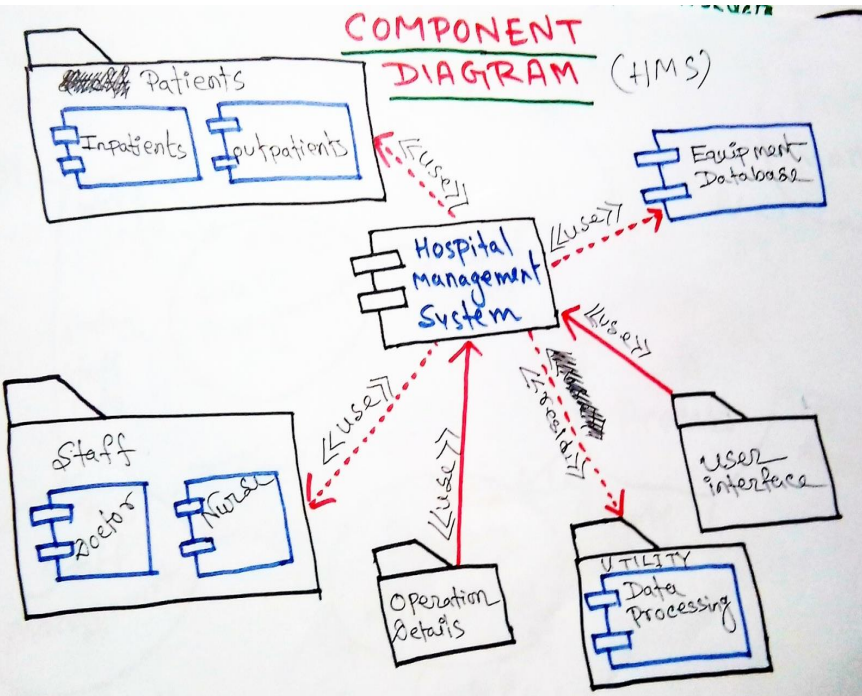 COMPONENT
DIAGRAM (HMS)
Patients
Inpatients
outpatients
<<use>>
Equipment
Database
<<use>>
Hospital
Management
System
<<use>>
<<use>>
<<use>>
<<resid>>
Staff
Doctor
Nurse
user
interface
Operation
Details
UTILITY
Data
Processing